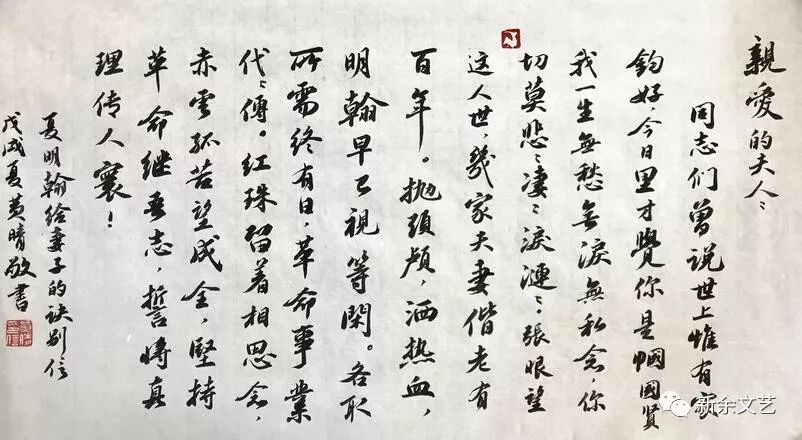 親愛的夫人：
同志们曾说世上惟有家
钧好，今日里才覺你是帼國贤
我一生無愁無淚無私念，你
切莫悲〻凄〻淚漣〻。張眼望
这人世，幾家夫妻偕老有
百年。抛頭颅，洒热血，
明翰早已視等閑。各取
所需终有日，革命事業
代〻傳。红珠留着相思念，
赤雲孤苦望成全，堅持
革命继吾志，誓将真
理传人寰！
夏明翰给妻子的诀别信
戊戌夏黄晴敬書
新余文艺